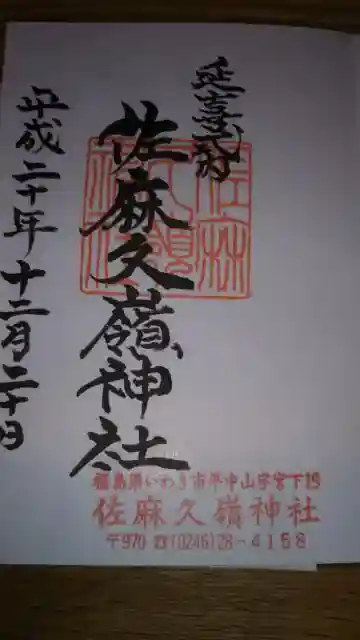 延喜式内
佐麻久嶺神社
平成二十年十二月二十日
福島県いわき市平中山字宮下19
佐麻久嶺神社
〒970 ☎(0246)28-4158